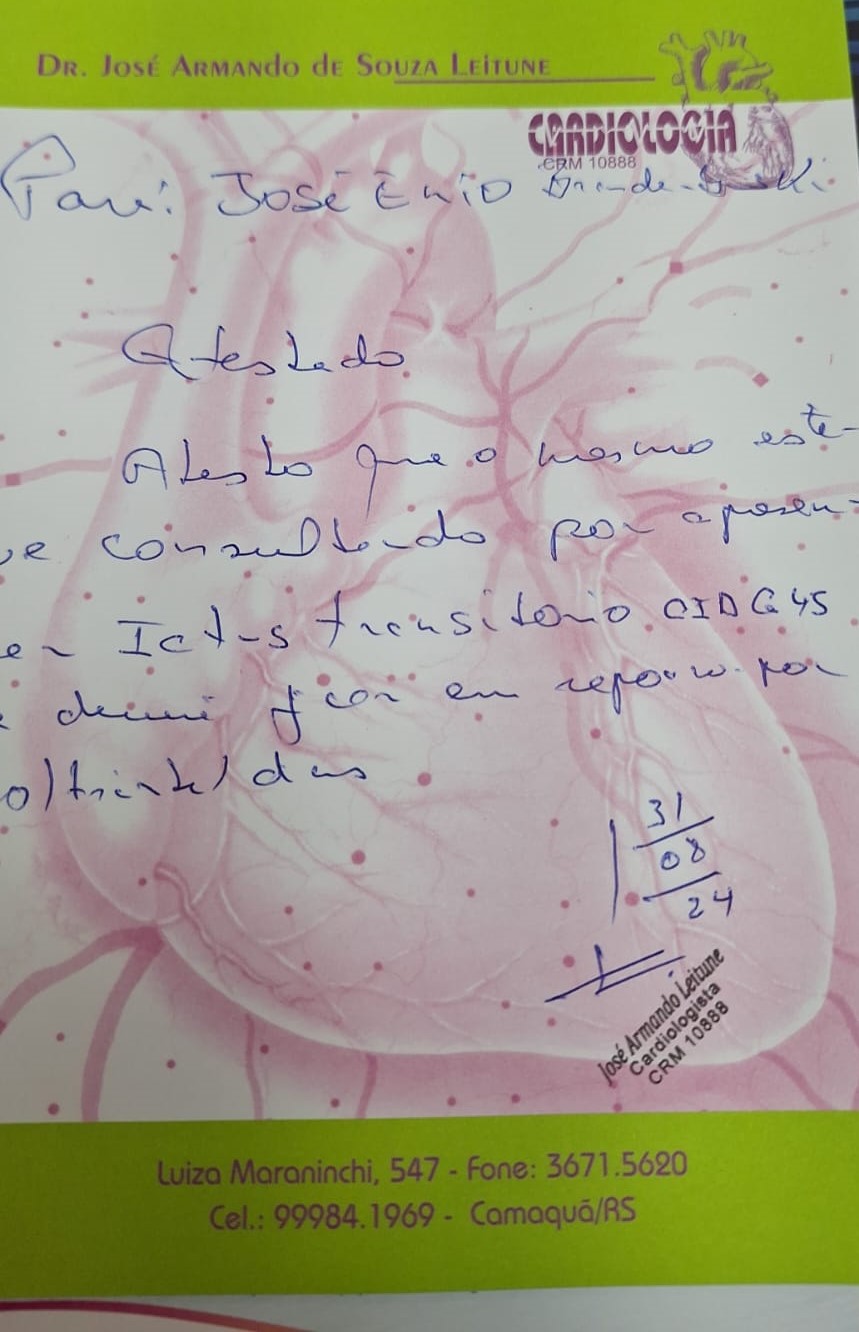 Dr. José Armando de Souza Leitune
CARDIOLOGIA
CRM 10888
Para: José Enio
Atestado
Atesto que o mesmo este-
ve consultando por apresen-
Ictus transitorio CID G45
ficar em repouso por
o (trinta) dias
31
08
24
José Armando Leitune
Cardiologista
CRM 10888
Luiza Maraninchi, 547 - Fone: 3671.5620
Cel.: 99984.1969 - Camaquã/RS